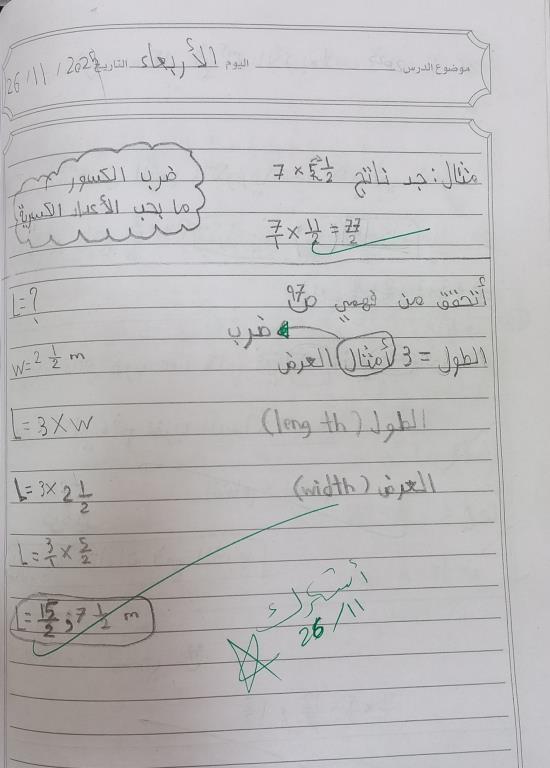 موضوع الدرس اليوم الأربعاء التاريخ 26 / 11 / 2025
ضرب الكسور
ما يجب الأعداد الكسرية
مثال: جد ناتج 7 × 5 1/2
7/1 × 11/2 = 77/2
أتحقق من فهمي ص 97
L = ?
ضرب
الطول = 3 أمثال العرض
W = 2 1/2 m
الطول (length)
L = 3 × W
العرض (width)
L = 3 × 2 1/2
L = 3/1 × 5/2
L = 15/2 ; 7 1/2 m
26/11